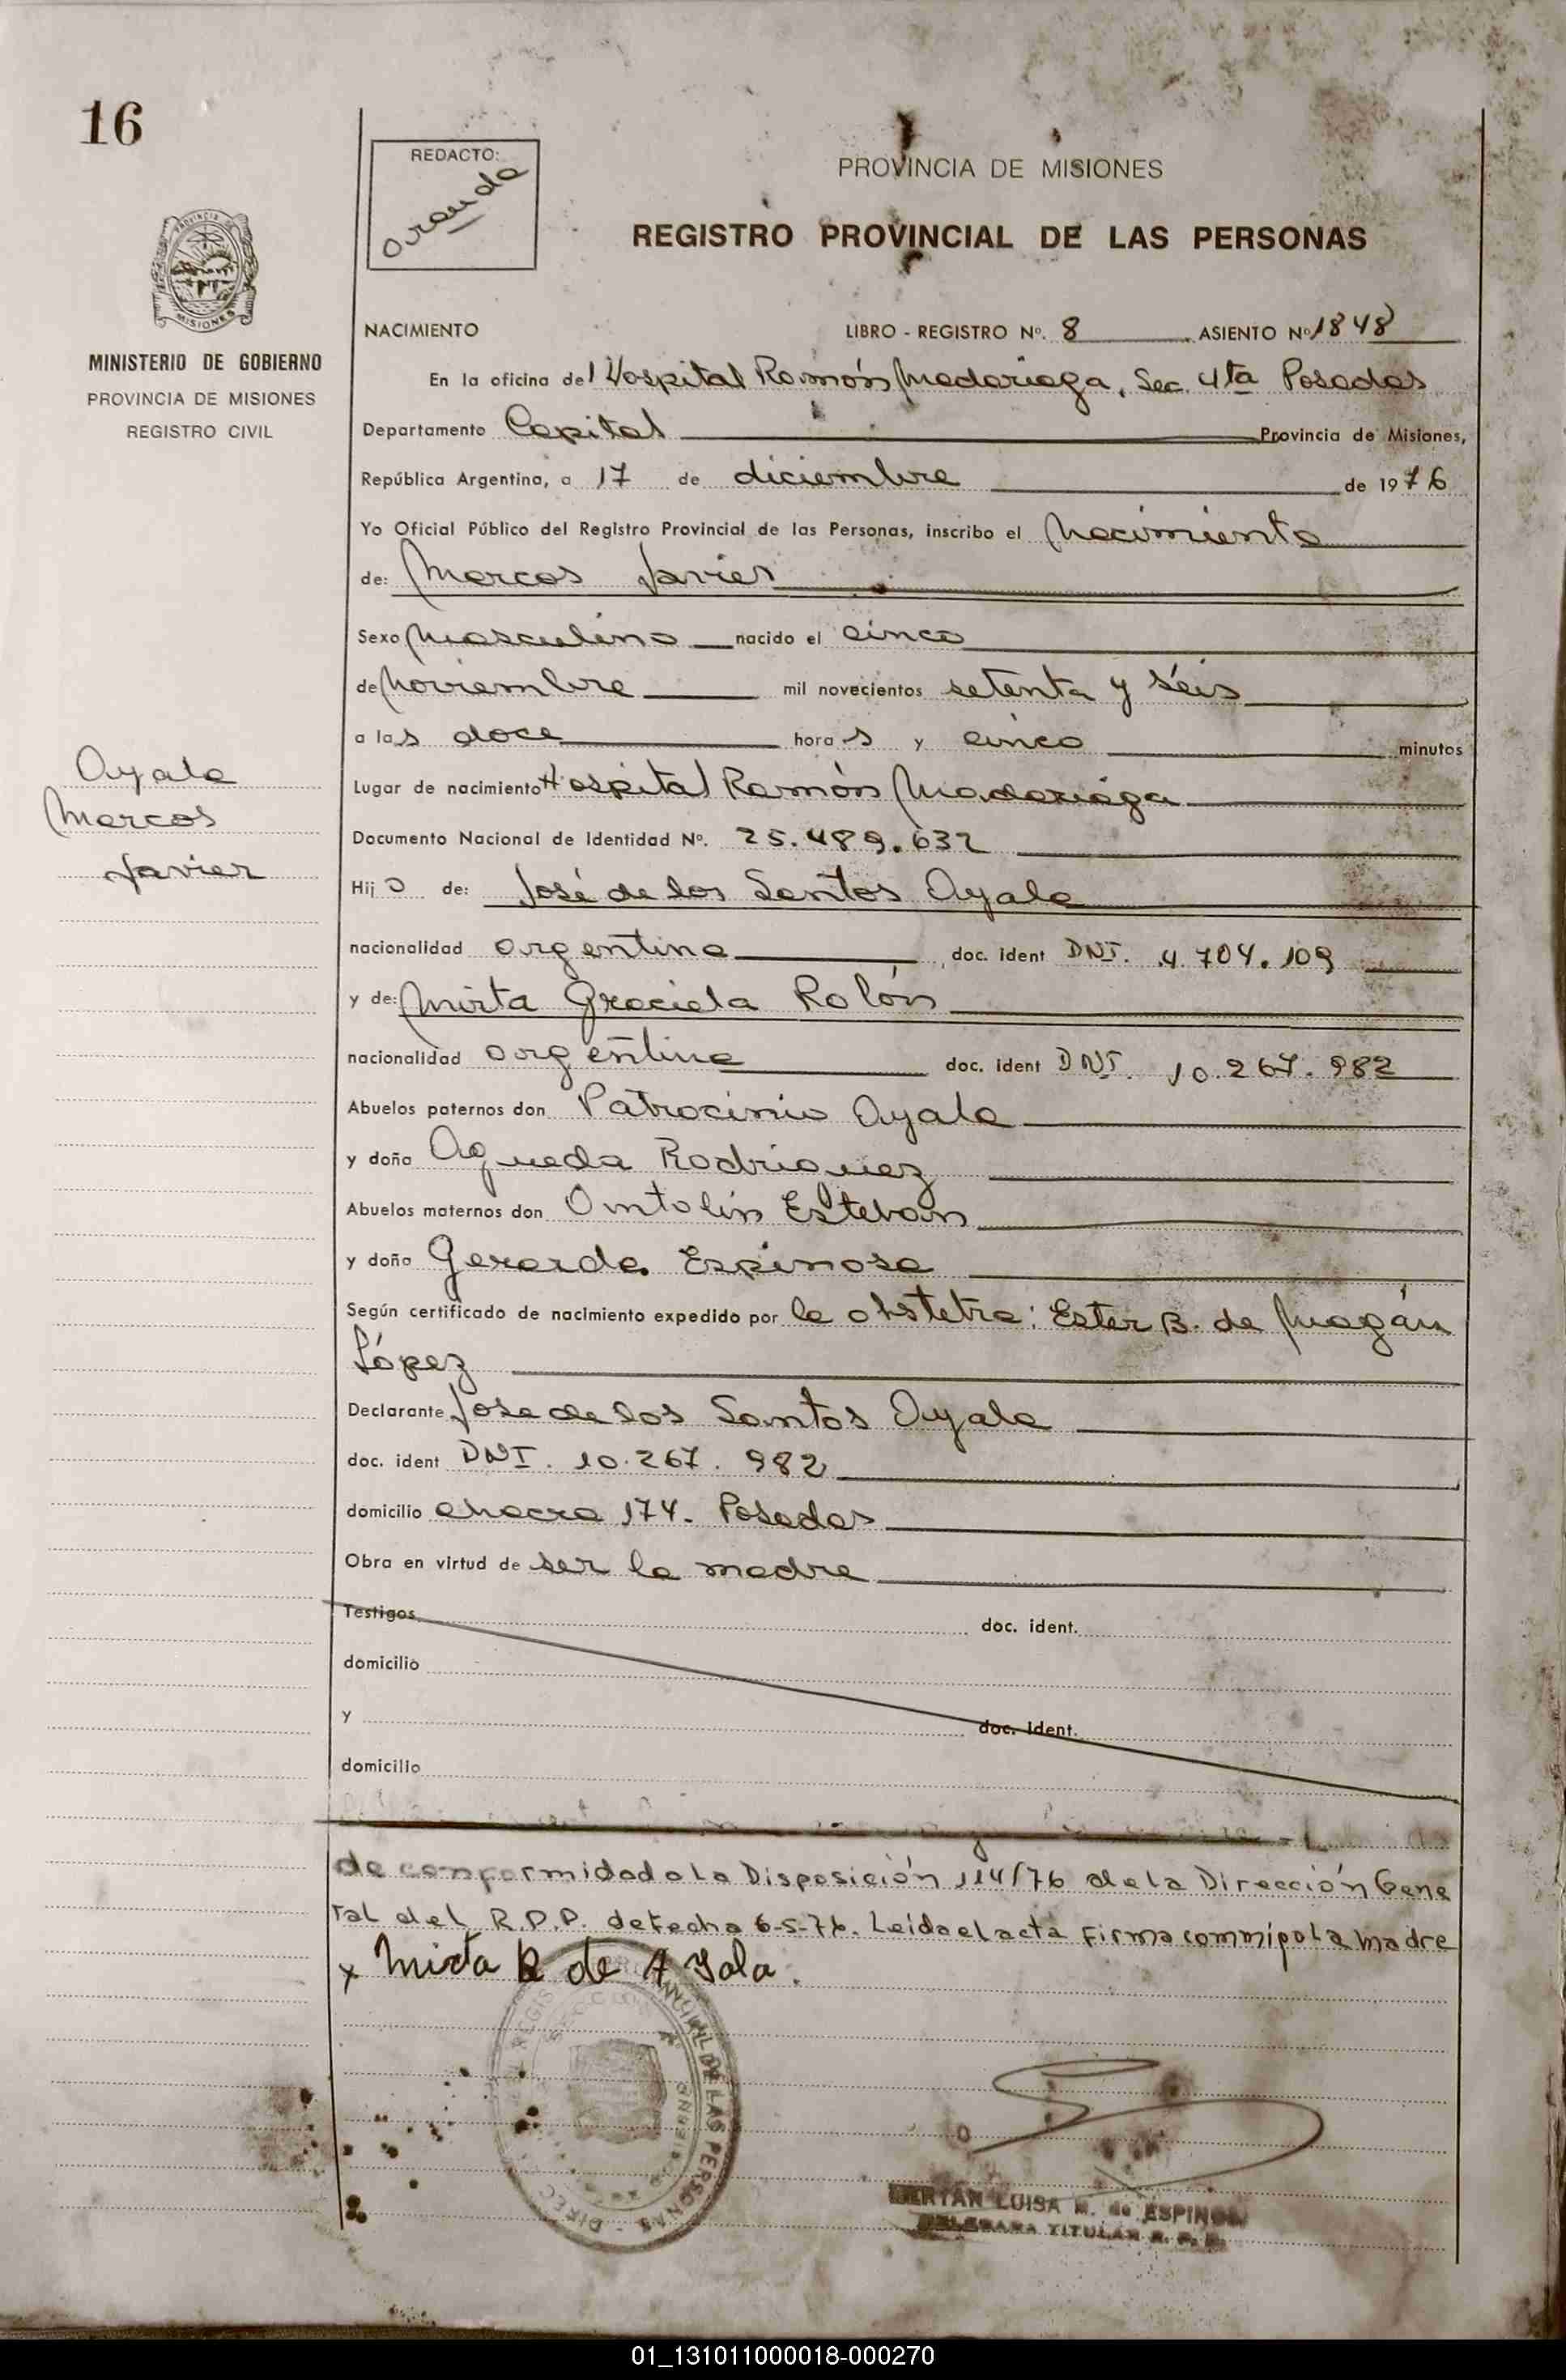 16
REDACTO:
Aranda
PROVINCIA DE MISIONES
REGISTRO PROVINCIAL DE LAS PERSONAS
PROVINCIA
MISIONES
MINISTERIO DE GOBIERNO
PROVINCIA DE MISIONES
REGISTRO CIVIL
NACIMIENTO LIBRO - REGISTRO Nº. 8 ASIENTO Nº 1848
En la oficina del Hospital Ramón Madariaga, Sec. 4ta Posadas
Departamento Capital Provincia de Misiones,
República Argentina, a 17 de diciembre de 1976
Yo Oficial Público del Registro Provincial de las Personas, inscribo el Nacimiento
de: Marcos Javier
Sexo Masculino nacido el cinco
de Noviembre mil novecientos setenta y séis
a las doce horas y cinco minutos
Ayala
Marcos
Javier
Lugar de nacimiento Hospital Ramón Madariaga
Documento Nacional de Identidad Nº. 25.489.632
Hijo de: José de los Santos Ayala
nacionalidad argentina doc. ident DNI. 4.704.109
y de: Mirta Graciela Rolón
nacionalidad argentina doc. ident DNI. 10.267.982
Abuelos paternos don Patrocinio Ayala
y doña Agueda Rodriguez
Abuelos maternos don Antolin Esteban
y doña Gerarda Espinosa
Según certificado de nacimiento expedido por la obstetra: Ester B. de Magán
López
Declarante Jose de los Santos Ayala
doc. ident DNI. 10.267.982
domicilio chacra 174. Posadas
Obra en virtud de ser la madre
Testigos doc. ident.
domicilio
y doc. ident.
domicilio
de conformidad a la Disposición 114/76 de la Dirección Gene
ral del R.P.P. de fecha 6-5-76. Leída el acta firma conmigo la madre
x Mirta R de Ayala.
DE LAS PERSONAS
LUISA M. de ESPINOSA
DELEGADA TITULAR R. P. P.
01_131011000018-000270